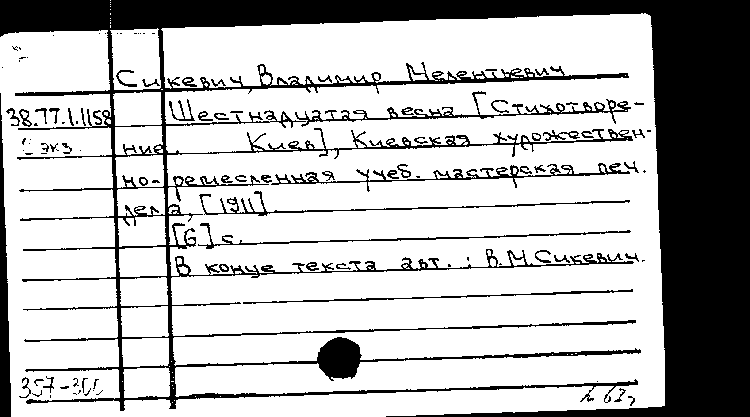 Сикевич, Владимир Мелентьевич
38.77.1.1158 Шестнадцатая весна [Стихотворе-
экз. ние. Киев], Киевская художествен-
но-ремесленная учеб. мастерская печ.
дела, [1911]
[6] с.
В конце текста авт.: В.М.Сикевич.
357-300